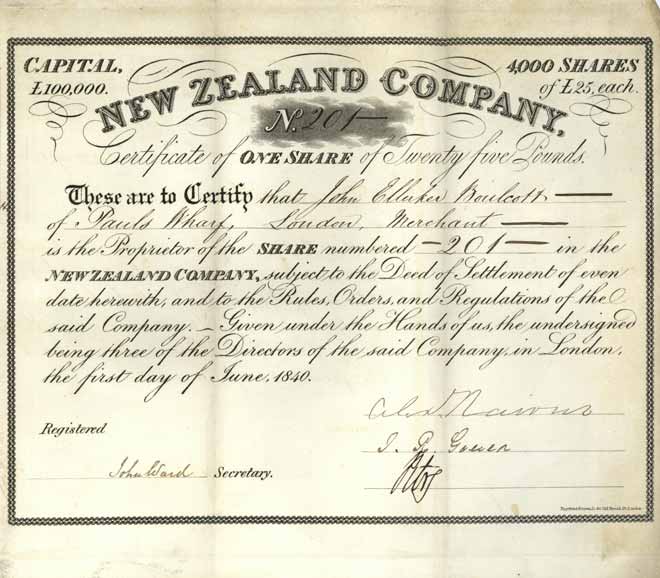 CAPITAL,
£100,000.
4,000 SHARES
of £25, each.
NEW ZEALAND COMPANY,
N. 201
Certificate of ONE SHARE of Twenty five Pounds.
These are to Certify that John Ellerker Boulcott
of Pauls Wharf, London, Merchant
is the Proprietor of the SHARE numbered — 201 — in the
NEW ZEALAND COMPANY, subject to the Deed of Settlement of even
date herewith, and to the Rules, Orders, and Regulations of the
said Company. — Given under the Hands of us, the undersigned
being three of the Directors of the said Company, in London,
the first day of June, 1840.
Alexr. Nairne
Registered
John Ward Secretary.